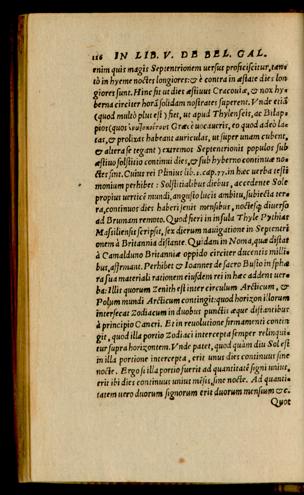 116 IN LIB. V. DE BEL. GAL.
enim quis magis Septentrionem uersus proficiscitur, tan
tò in hyeme noctes longiores: & è contra in æstate dies lon
giores sunt. Hinc fit ut dies æstiuus Cracouiæ, & nox hy
berna circiter horā solidam nostrates superent. Vnde etiā
(quod multò plus est) fiet, ut apud Thylenseis, ac
pios (quos Græcè uocaueris, eo quod adeò la
tas, & prolixas habeant auriculas, ut super unam cubent,
& altera se tegant) extremos Septentrionis populos sub
æstiuo solstitio continui dies, & sub hyberno continuæ no=
ctes sint. Cuius rei Plinius lib. 2. cap. 77. in hæc uerba testi
monium perhibet: Solstitialibus diebus, accedente Sole
propius uerticē mundi, angusto lucis ambitu, subiecta ter=
ra, continuos dies haberi senis mensibus, noctesq́; diuerso
ad Brumam remoto. Quod fieri in insula Thyle Pythias
Massiliensis scripsit, sex dierum nauigatione in Septentri
onem à Britannia distante. Quidam in Mona, quæ distat
à Camalduno Britanniæ oppido circiter ducentis milli
bus, affirmant. Perhibet & Ioannes de sacro Busto in sphæ
ra sua materiali rationem eiusdem rei in hæc addens uer=
ba: Illis quorum Zenith est inter circulum Arcticum, &
Polum mundi Arcticum contingit: quod horizon illorum
intersecat Zodiacum in duobus punctis æque distantibus
à principio Cancri. Et in reuolutione firmamenti contin
git, quod illa portio Zodiaci intercepta semper relinqui=
tur supra horizontem. Vnde patet, quod quàm diu Sol est
in illa portione intercepta, erit unus dies continuus sine
nocte. Ergo si illa portio fuerit ad quantitatē signi unius,
erit ibi dies continuus unius mēsis, sine nocte. Ad quanti=
tatem uero duorum signorum erit duorum mensium &c.
Quot